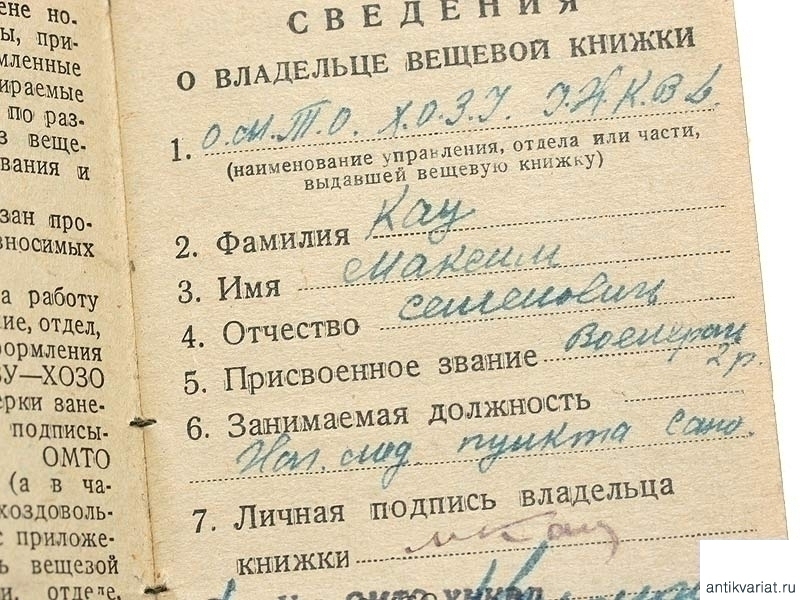 ене но-
ы, при-
мленные
ираемые
по раз-
з веще-
вания и
зан про-
зносимых
а работу
ие, отдел,
формления
ВУ—ХОЗО
ерки зане-
подписы-
ОМТО
(а в ча-
хоздоволь-
с приложе-
ь вещевой
и, отделе,
СВЕДЕНИЯ
О ВЛАДЕЛЬЦЕ ВЕЩЕВОЙ КНИЖКИ
1. О.М.Т.О. Х.О.З.У.
(наименование управления, отдела или части,
выдавшей вещевую книжку)
2. Фамилия Кац
3. Имя Максим
4. Отчество Семенович
5. Присвоенное звание Военврач
2 р.
6. Занимаемая должность
Нач. мед пункта
7. Личная подпись владельца
книжки МКац
ОМТО
antikvariat.ru